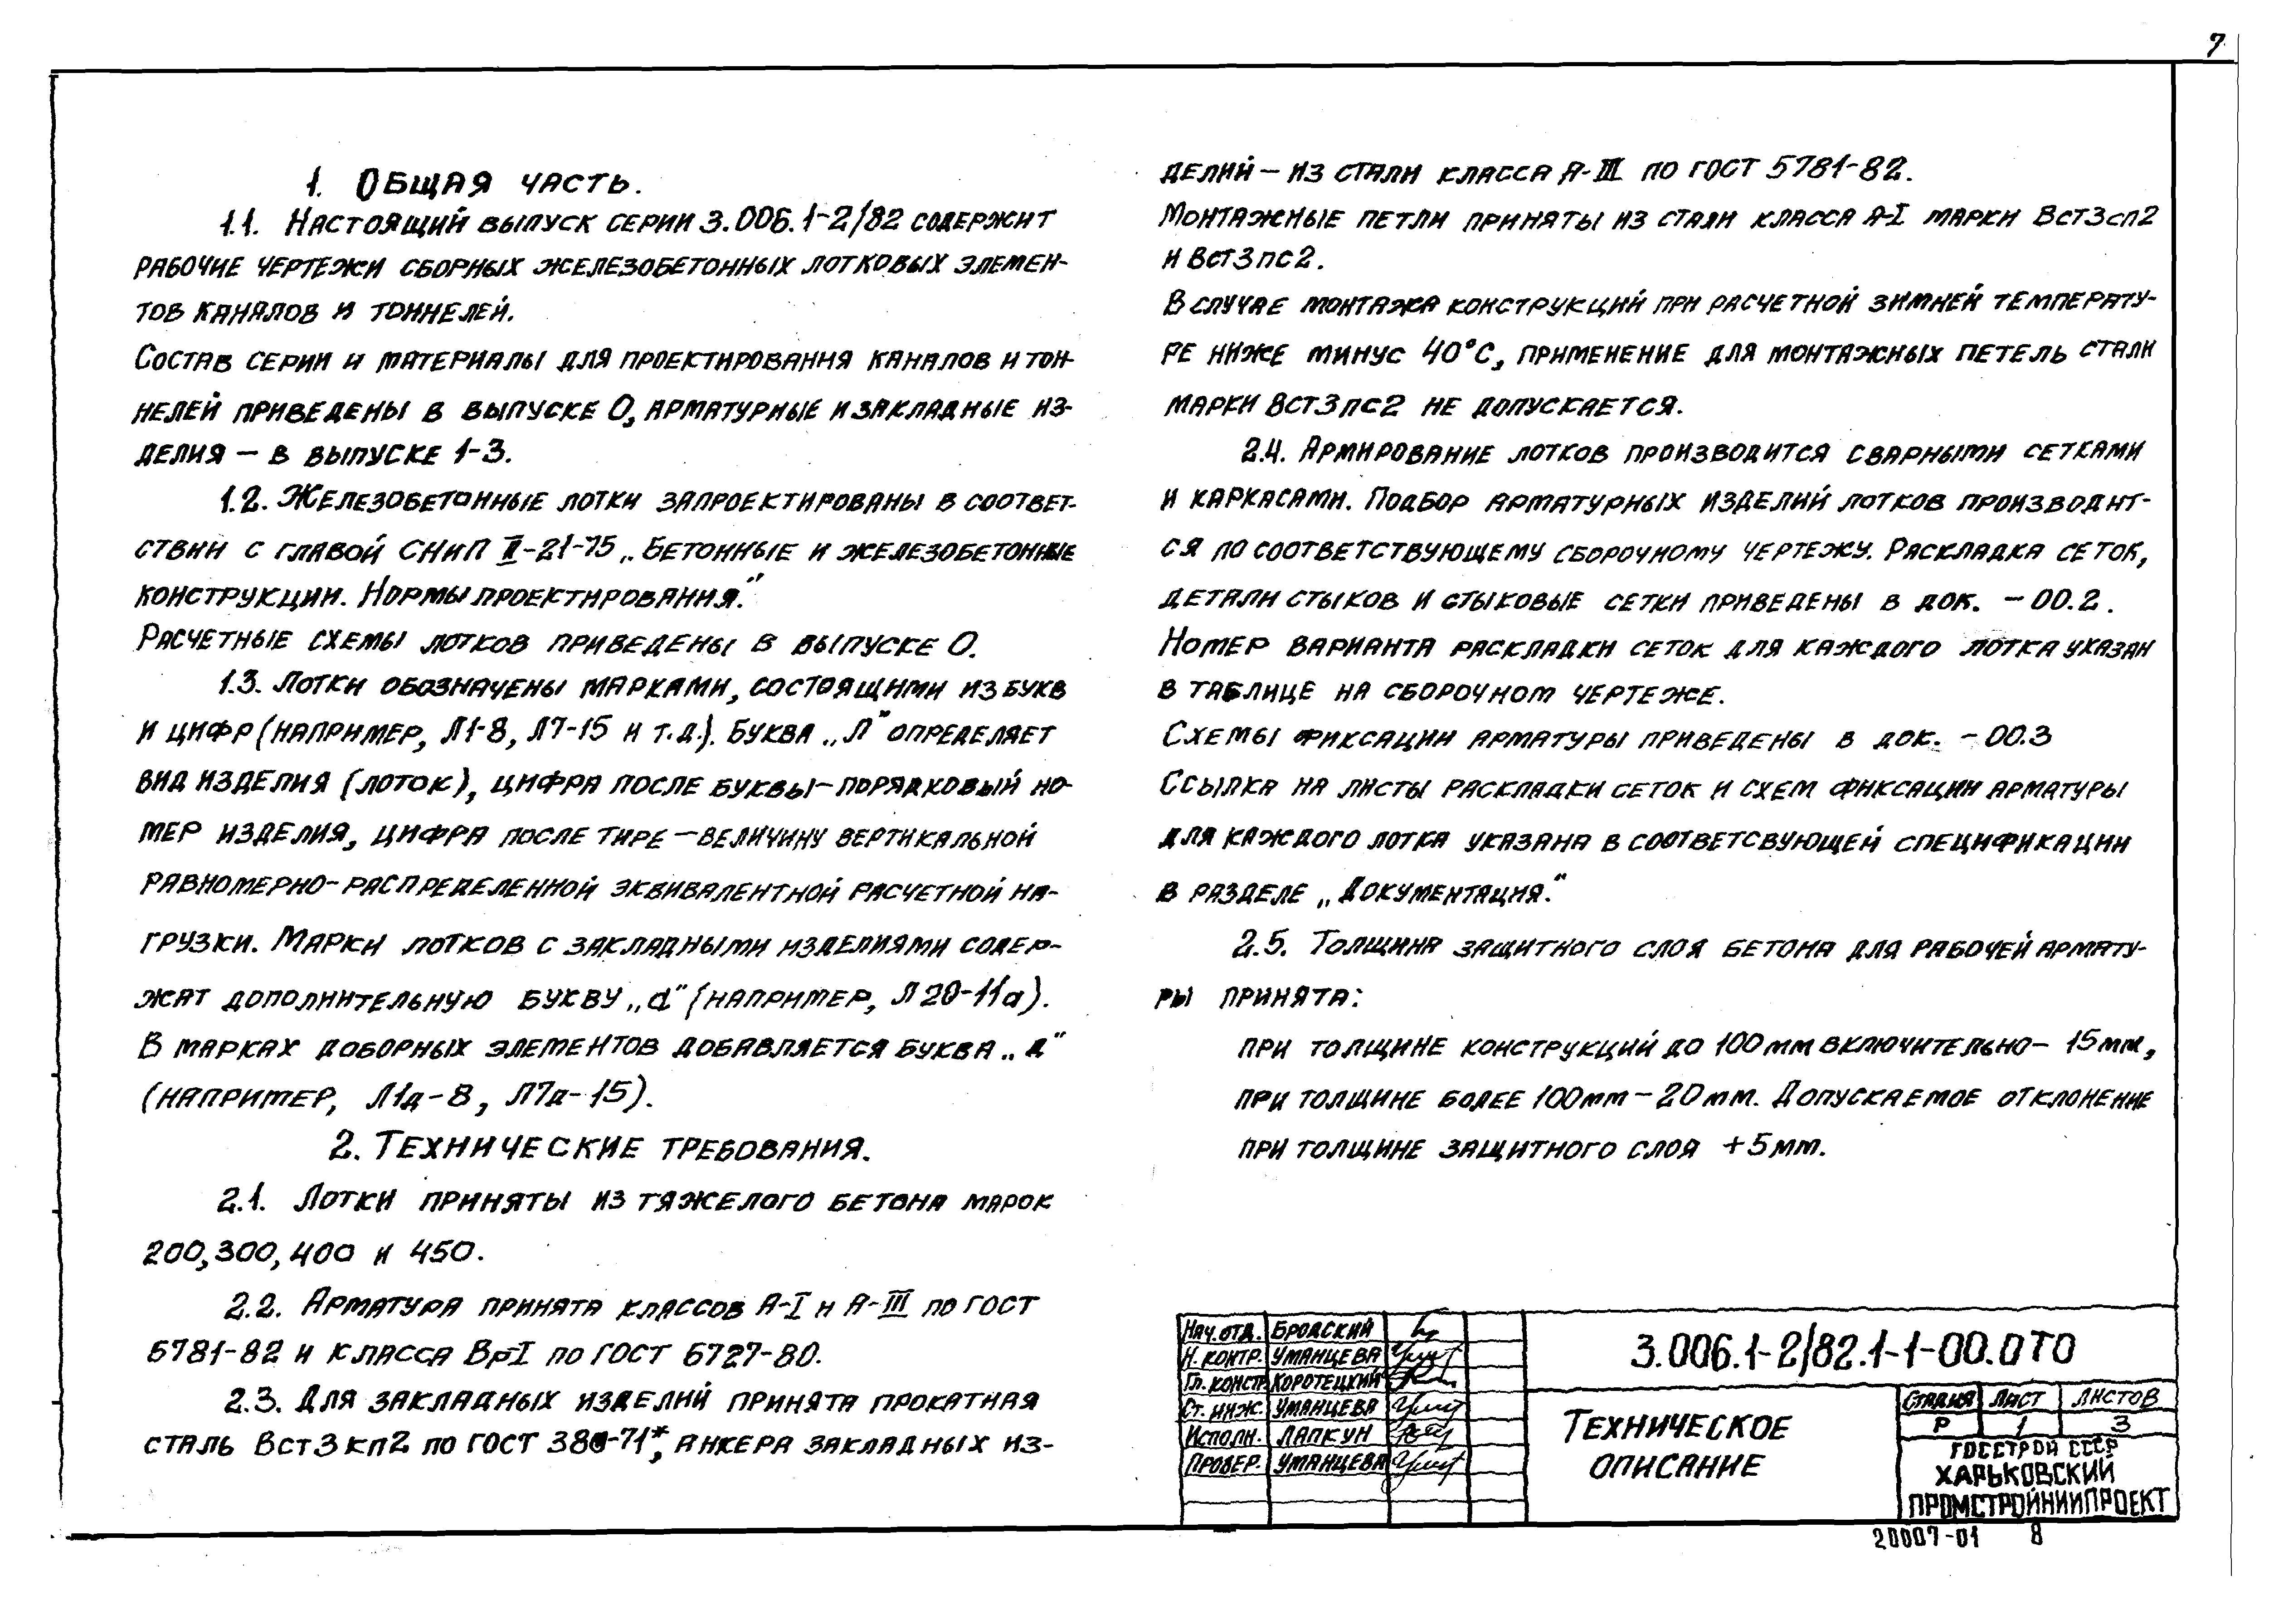 7
1. Общая часть.
1.1. Настоящий выпуск серии 3.006.1-2/82 содержит
рабочие чертежи сборных железобетонных лотковых элемен-
тов каналов и тоннелей.
Состав серии и материалы для проектирования каналов и тон-
нелей приведены в выпуске 0, арматурные и закладные из-
делия — в выпуске 1-3.
1.2. Железобетонные лотки запроектированы в соответ-
ствии с главой СНиП II-21-75 „Бетонные и железобетонные
конструкции. Нормы проектирования."
Расчетные схемы лотков приведены в выпуске 0.
1.3. Лотки обозначены марками, состоящими из букв
и цифр (например, Л1-8, Л7-15 и т.д.). Буква „Л" определяет
вид изделия (лоток), цифра после буквы — порядковый но-
мер изделия, цифра после тире — величину вертикальной
равномерно-распределенной эквивалентной расчетной на-
грузки. Марки лотков с закладными изделиями содер-
жат дополнительную букву „а" (например, Л20-11а).
В марках доборных элементов добавляется буква „д"
(например, Л1д-8, Л7д-15).
2. Технические требования.
2.1. Лотки приняты из тяжелого бетона марок
200, 300, 400 и 450.
2.2. Арматура принята классов А-I и А-III по ГОСТ
5781-82 и класса Вр-I по ГОСТ 6727-80.
2.3. Для закладных изделий принята прокатная
сталь Вст3кп2 по ГОСТ 380-71*, анкера закладных из-
делий — из стали класса А-III по ГОСТ 5781-82.
Монтажные петли приняты из стали класса А-I марки Вст3сп2
и Вст3пс2.
В случае монтажа конструкций при расчетной зимней температу-
ре ниже минус 40°С, применение для монтажных петель стали
марки Вст3пс2 не допускается.
2.4. Армирование лотков производится сварными сетками
и каркасами. Подбор арматурных изделий лотков производит-
ся по соответствующему сборочному чертежу. Раскладка сеток,
детали стыков и стыковые сетки приведены в док. — 00.2.
Номер варианта раскладки сеток для каждого лотка указан
в таблице на сборочном чертеже.
Схемы фиксации арматуры приведены в док. — 00.3
Ссылка на листы раскладки сеток и схем фиксации арматуры
для каждого лотка указана в соответсвующей спецификации
в разделе „Документация."
2.5. Толщина защитного слоя бетона для рабочей армату-
ры принята:
при толщине конструкций до 100мм включительно — 15мм,
при толщине более 100мм — 20мм. Допускаемое отклонение
при толщине защитного слоя +5мм.
Нач. отд. Бродский
Н. контр. Уманцева
Гл. констр. Коротецкий
Ст. инж. Уманцева
Исполн. Лапкун
Провер. Уманцева
3.006.1-2/82.1-1-00.0ТО
Техническое
описание
Стадия Лист Листов
Р 1 3
Госстрой СССР
Харьковский
Промстройниипроект
20007-01 8